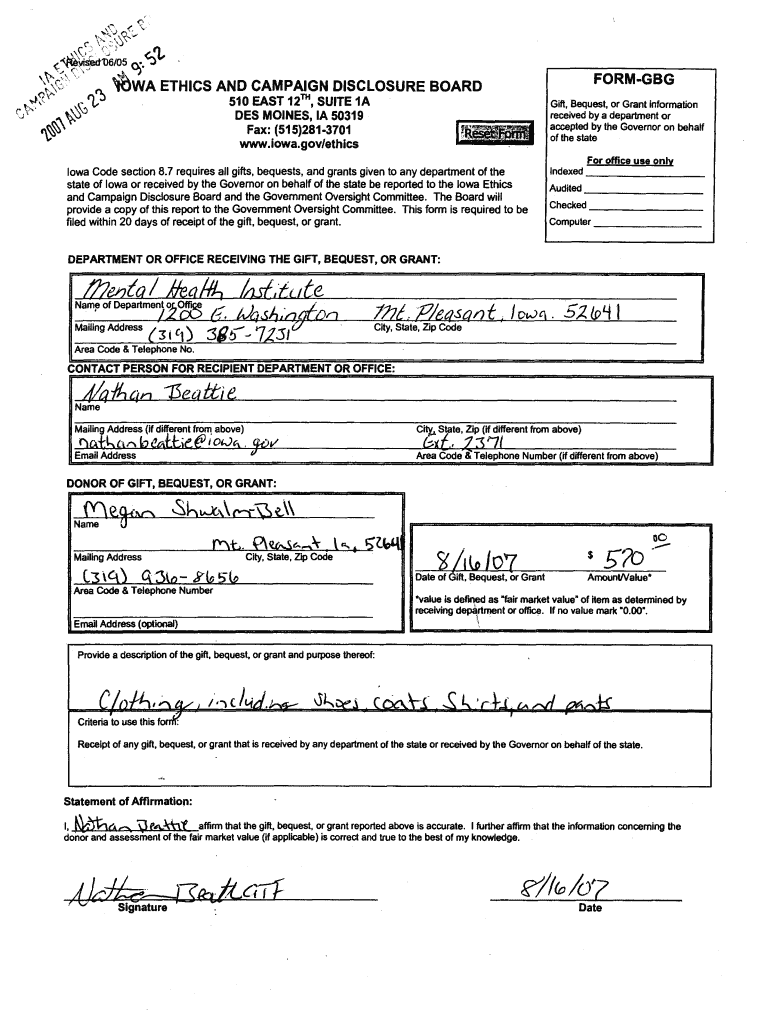 IA ETHICS AND
CAMPAIGN DISCLOSURE BD
2007 AUG 23 AM 9:52
Revised 06/05
IOWA ETHICS AND CAMPAIGN DISCLOSURE BOARD
510 EAST 12TH, SUITE 1A
DES MOINES, IA 50319
Fax: (515)281-3701
www.iowa.gov/ethics
Reset Form
FORM-GBG
Gift, Bequest, or Grant information
received by a department or
accepted by the Governor on behalf
of the state
For office use only
Indexed
Audited
Checked
Computer
Iowa Code section 8.7 requires all gifts, bequests, and grants given to any department of the
state of Iowa or received by the Governor on behalf of the state be reported to the Iowa Ethics
and Campaign Disclosure Board and the Government Oversight Committee. The Board will
provide a copy of this report to the Government Oversight Committee. This form is required to be
filed within 20 days of receipt of the gift, bequest, or grant.
DEPARTMENT OR OFFICE RECEIVING THE GIFT, BEQUEST, OR GRANT:
Mental Health Institute
Name of Department or Office
1200 E. Washington Mt. Pleasant, Iowa. 52641
Mailing Address City, State, Zip Code
(319) 385-7231
Area Code & Telephone No.
CONTACT PERSON FOR RECIPIENT DEPARTMENT OR OFFICE:
Nathan Beattie
Name
Mailing Address (if different from above) City, State, Zip (if different from above)
nathanbeattie@iowa.gov Ext. 2371
Email Address Area Code & Telephone Number (if different from above)
DONOR OF GIFT, BEQUEST, OR GRANT:
Megan Bell
Name
Mt. Pleasant, Ia, 52641
Mailing Address City, State, Zip Code
(319) 936-8656
Area Code & Telephone Number
Email Address (optional)
8/16/07 $ 570 00
Date of Gift, Bequest, or Grant Amount/Value*
*value is defined as "fair market value" of item as determined by
receiving department or office. If no value mark "0.00".
Provide a description of the gift, bequest, or grant and purpose thereof:
Clothing, including shoes, coats, Shirts, and pants
Criteria to use this form:
Receipt of any gift, bequest, or grant that is received by any department of the state or received by the Governor on behalf of the state.
Statement of Affirmation:
I, Nathan Beattie affirm that the gift, bequest, or grant reported above is accurate. I further affirm that the information concerning the
donor and assessment of the fair market value (if applicable) is correct and true to the best of my knowledge.
8/16/07
Signature Date